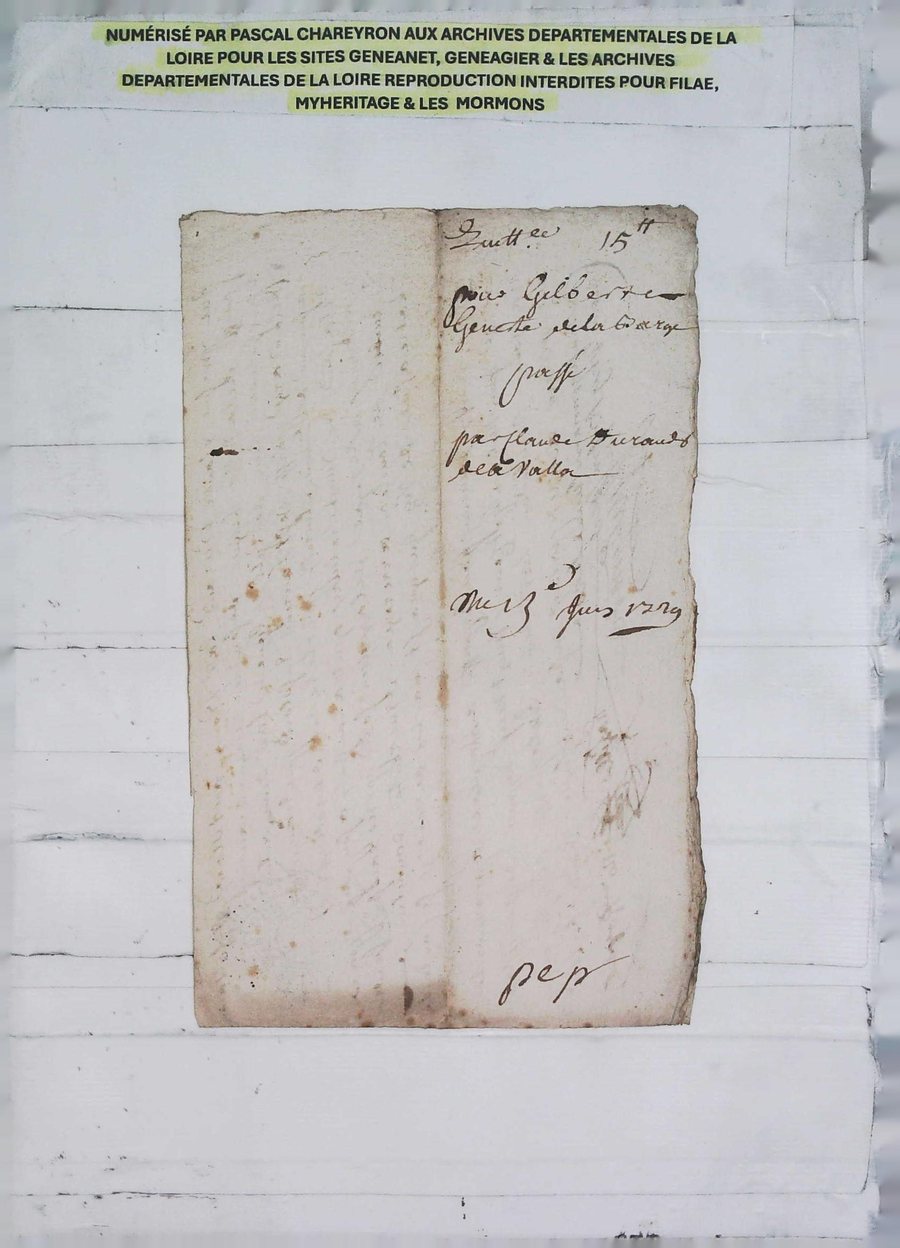 NUMÉRISÉ PAR PASCAL CHAREYRON AUX ARCHIVES DEPARTEMENTALES DE LA
LOIRE POUR LES SITES GENEANET, GENEAGIER & LES ARCHIVES
DEPARTEMENTALES DE LA LOIRE REPRODUCTION INTERDITES POUR FILAE,
MYHERITAGE & LES MORMONS
15 tt
pour Gilberte
de la Barge
passé
par Claude Durand
de la Valla
Juin
pep